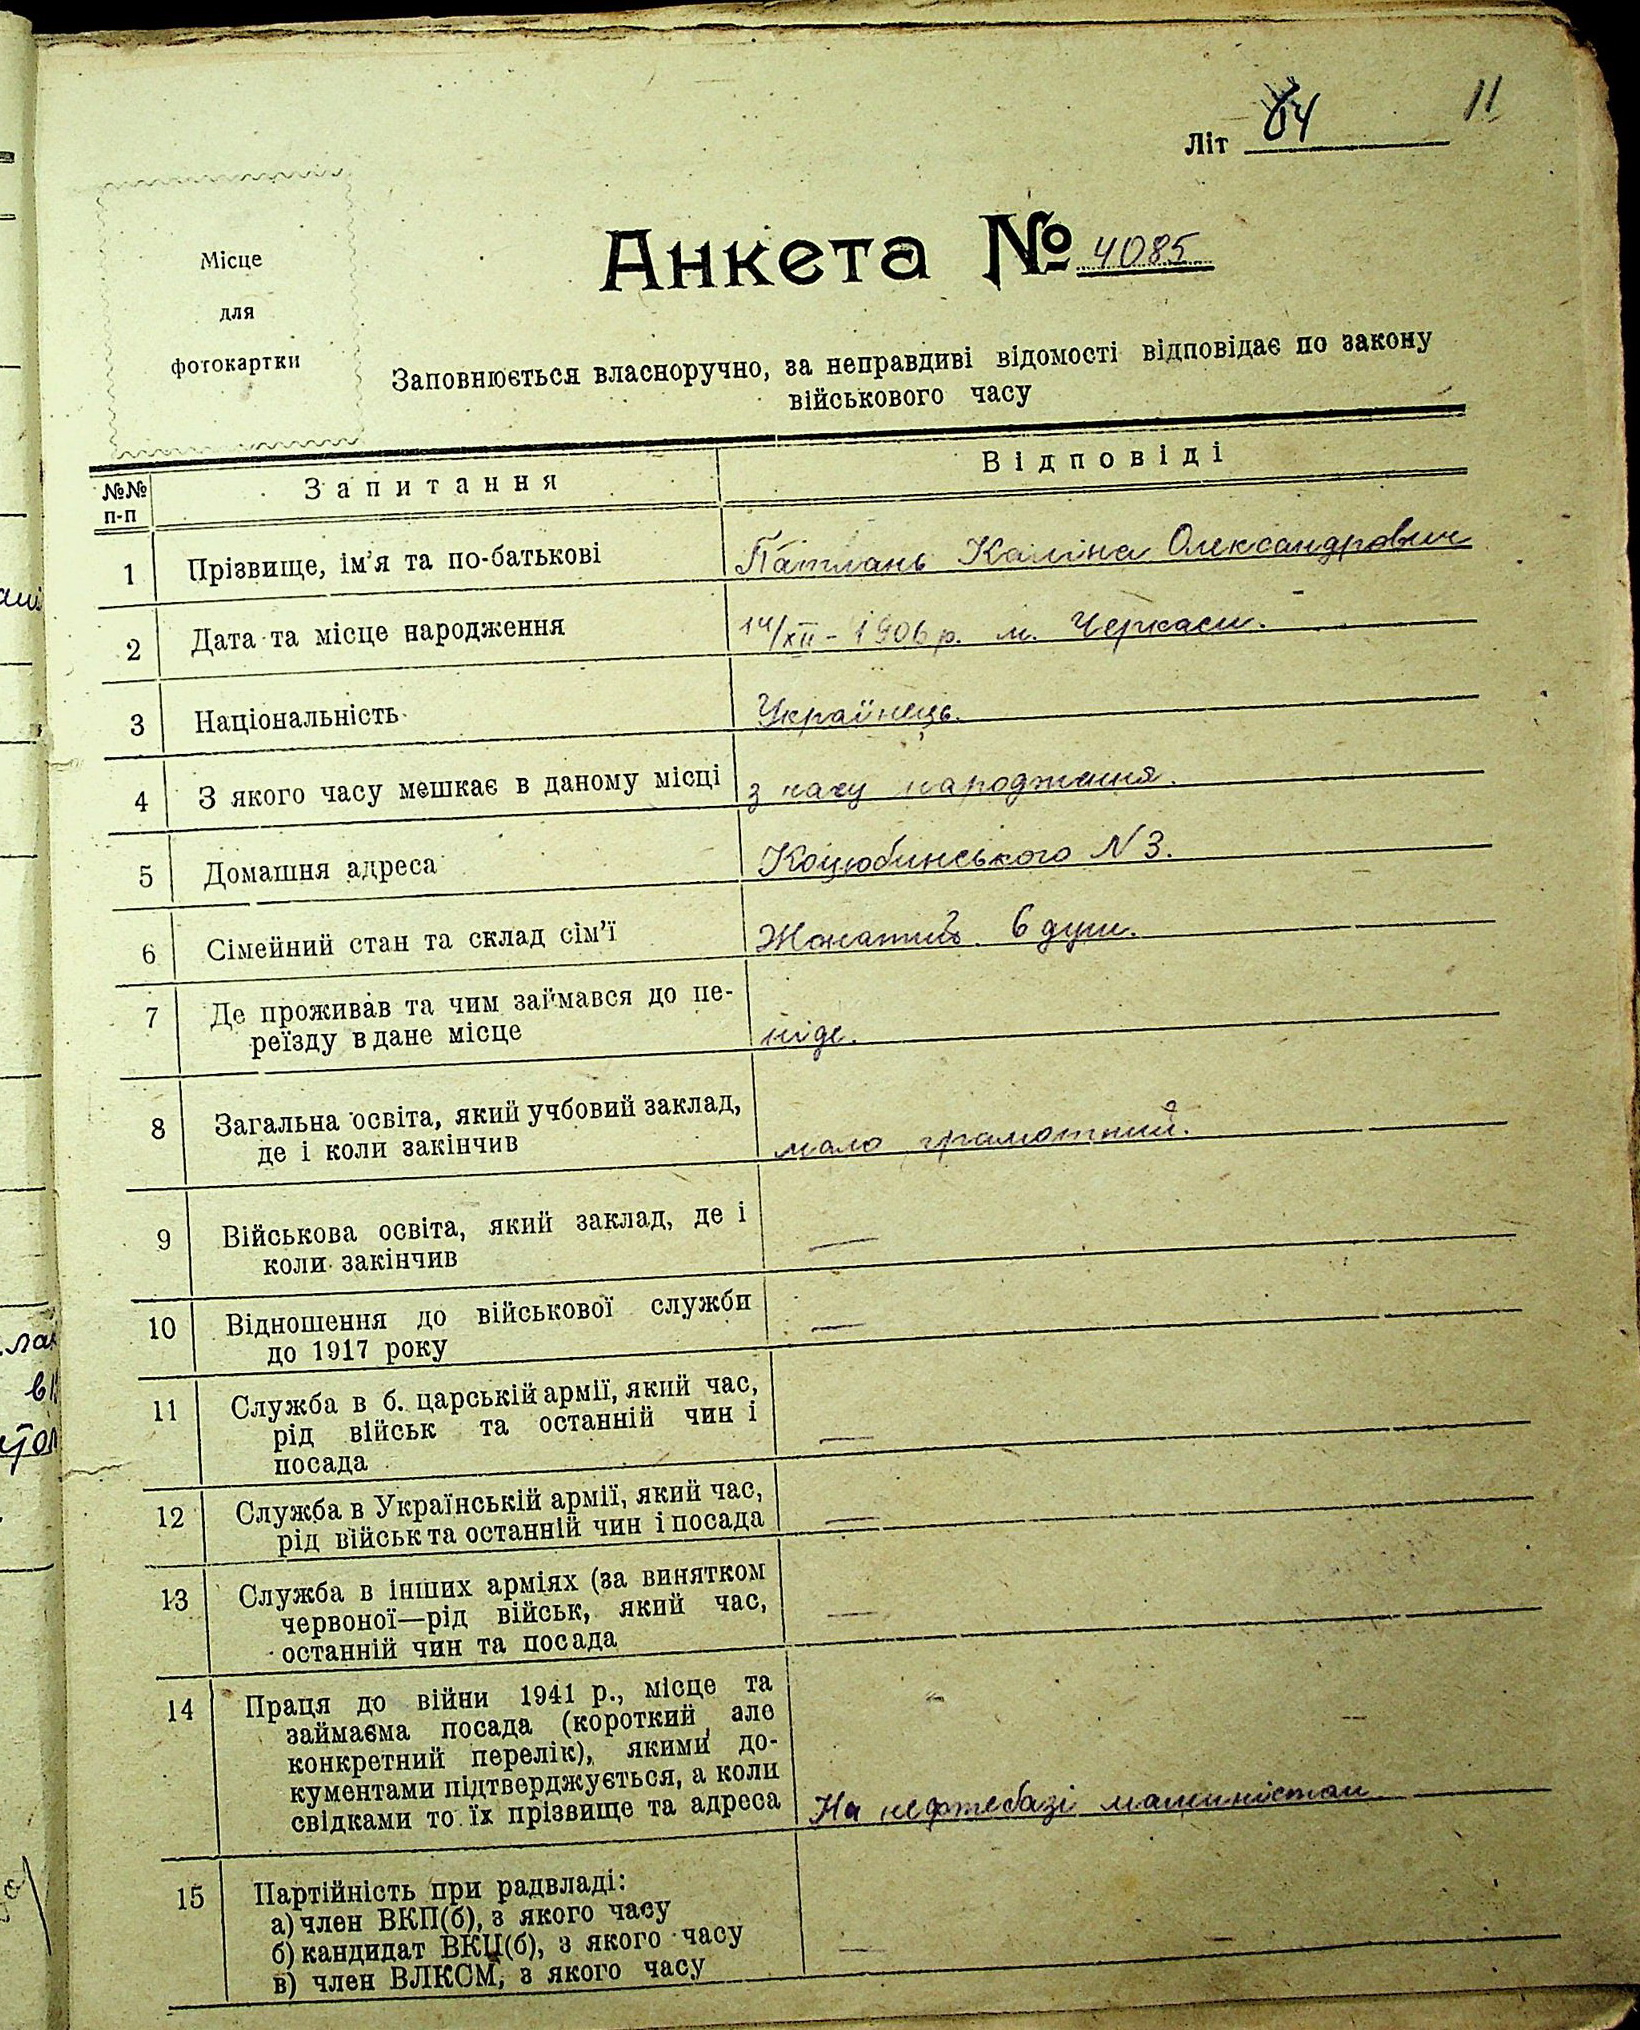 11
Літ 84
Місце
для
фотокартки
Анкета № 4085
Заповнюється власноручно, за неправдиві відомості відповідає по закону
військового часу
№№ п-п
Запитання
Відповіді
1 Прізвище, ім'я та по-батькові
Патлань Каліна Олександрович
2 Дата та місце народження
14/XII - 1906 р. м. Черкаси.
3 Національність
Українець.
4 З якого часу мешкає в даному місці
з часу народження.
5 Домашня адреса
Коцюбинського N 3.
6 Сімейний стан та склад сім'ї
Жонатий. 6 душ.
7 Де проживав та чим займався до пе-
реїзду в дане місце
ніде.
8 Загальна освіта, який учбовий заклад,
де і коли закінчив
мало грамотний.
9 Військова освіта, який заклад, де і
коли закінчив
—
10 Відношення до військової служби
до 1917 року
—
11 Служба в б. царській армії, який час,
рід військ та останній чин і
посада
—
12 Служба в Українській армії, який час,
рід військ та останній чин і посада
—
13 Служба в інших арміях (за винятком
червоної—рід військ, який час,
останній чин та посада
—
14 Праця до війни 1941 р., місце та
займаєма посада (короткий але
конкретний перелік), якими до-
кументами підтверджується, а коли
свідками то їх прізвище та адреса
На нефтебазі машиністом.
15 Партійність при радвладі:
а) член ВКП(б), з якого часу
б) кандидат ВКЦ(б), з якого часу
в) член ВЛКСМ, з якого часу
—